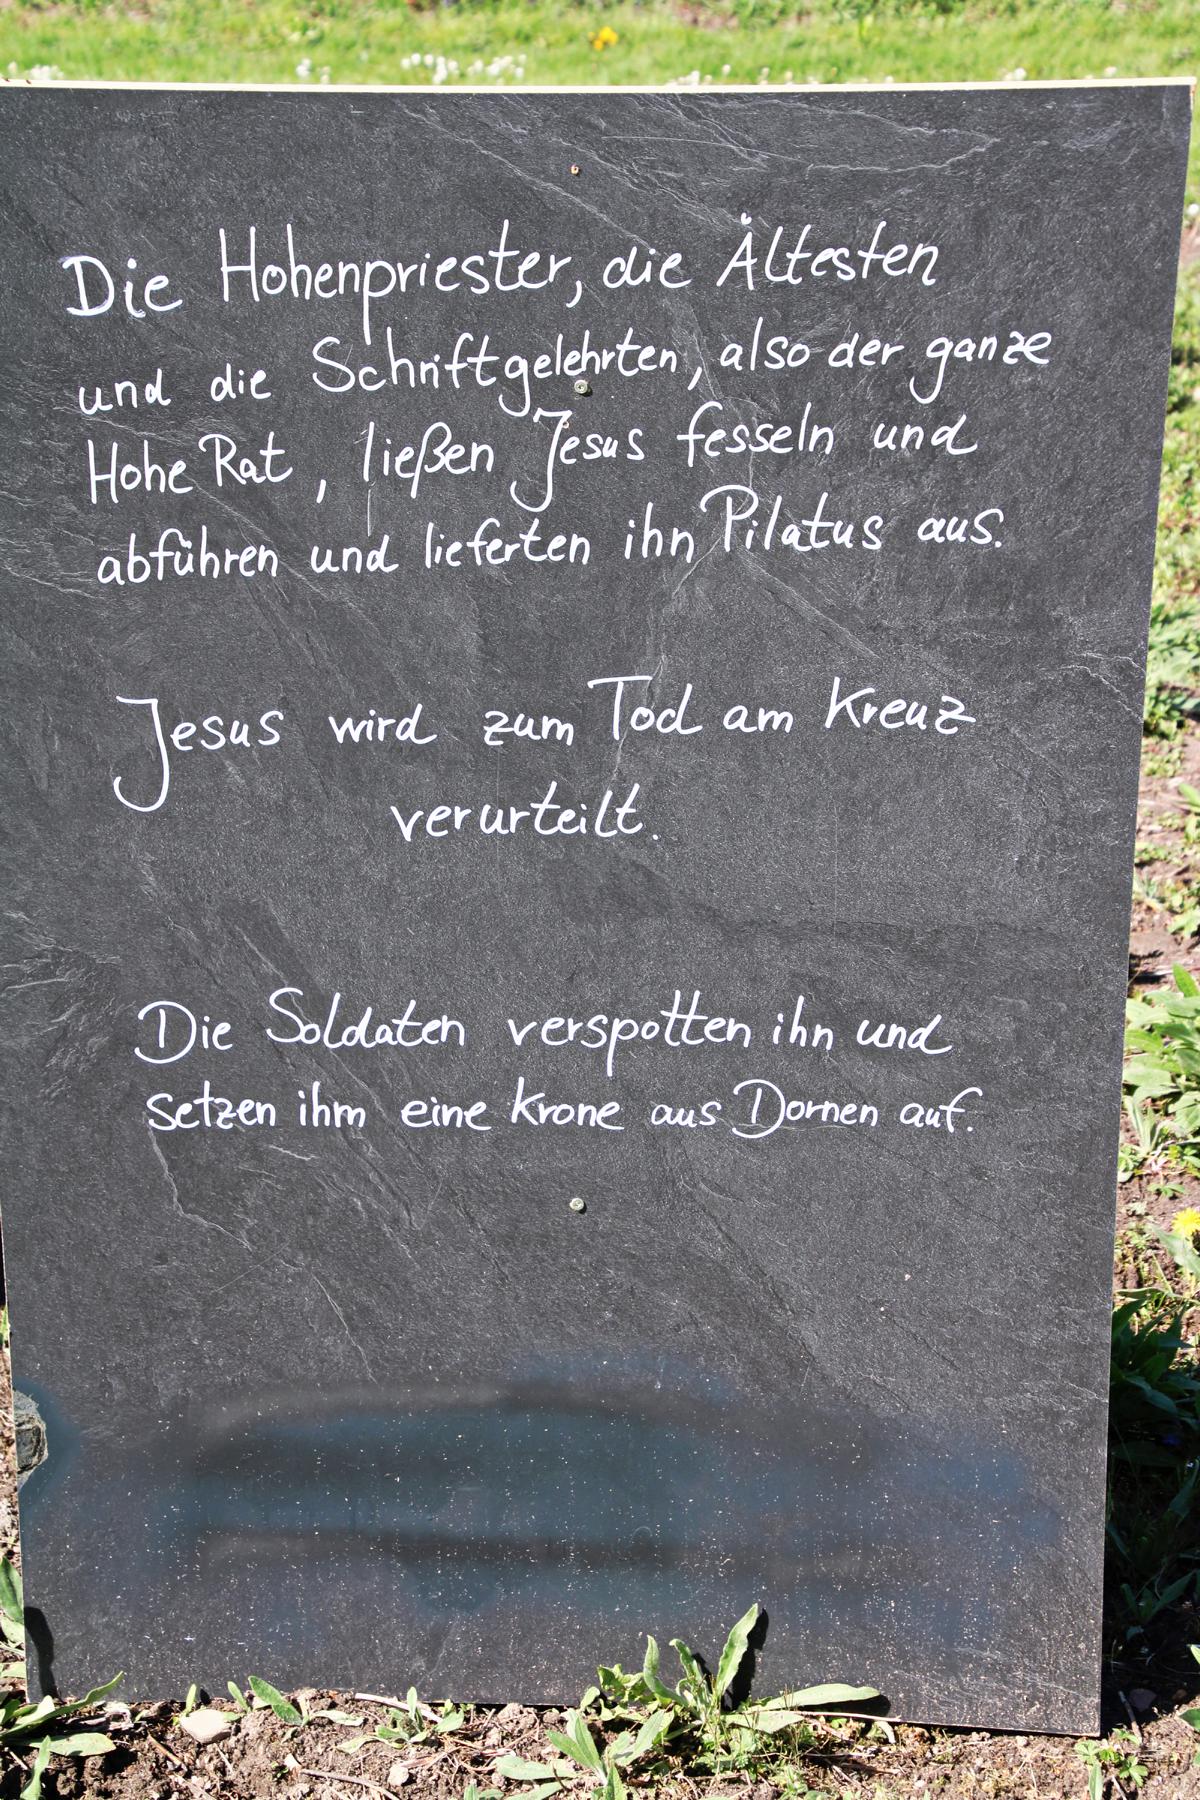 Die Hohenpriester, die Ältesten
und die Schriftgelehrten, also der ganze
Hohe Rat, ließen Jesus fesseln und
abführen und lieferten ihn Pilatus aus.
Jesus wird zum Tod am Kreuz
verurteilt.
Die Soldaten verspotten ihn und
setzen ihm eine Krone aus Dornen auf.